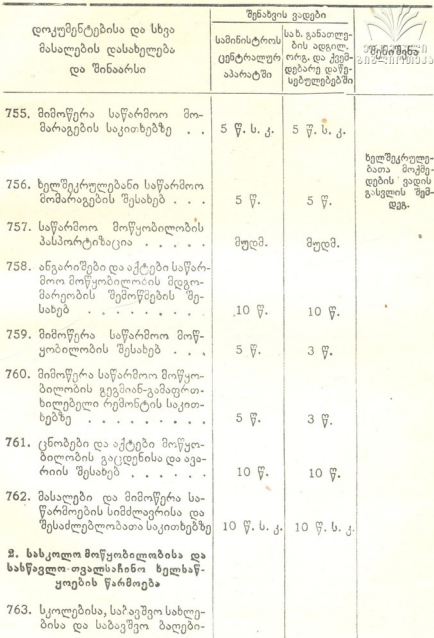 დოკუმენტებისა და სხვა
მასალების დასახელება
და შინაარსი
შენახვის ვადები
სამინისტროს
ცენტრალურ
აპარატში
სახ. განათლე-
ბის ადგილ.
ორგ. და ქვემ-
დებარე დაწე-
სებულებებში
შენიშვნა
755. მიმოწერა საწარმოო მო-
მარაგების საკითხებზე . . 5 წ. ს. კ. 5 წ. ს. კ.
ხელშეკრულე-
ბათა მოქმე-
დების ვადის
გასვლის შემ-
დეგ.
756. ხელშეკრულებანი საწარმოო
მომარაგების შესახებ . . . 5 წ. 5 წ.
757. საწარმოო მოწყობილობის
პასპორტიზაცია . . . . . მუდმ. მუდმ.
758. ანგარიშები და აქტები საწარ-
მოო მოწყობილობის მდგო-
მარეობის შემოწმების შე-
სახებ . . . . . . . . 10 წ. 10 წ.
759. მიმოწერა საწარმოო მოწ-
ყობილობის შესახებ . . . 5 წ. 3 წ.
760. მიმოწერა საწარმოო მოწყო-
ბილობის გეგმიან-გამაფრთ-
ხილებელი რემონტის საკით-
ხებზე . . . . . . . . 5 წ. 3 წ.
761. ცნობები და აქტები მოწყო-
ბილობის გაცდენისა და ავა-
რიის შესახებ . . . . . . 10 წ. 10 წ.
762. მასალები და მიმოწერა სა-
წარმოების სიმძლავრისა და
შესაძლებლობათა საკითხებზე 10 წ. ს. კ. 10 წ. ს. კ.
2. სასკოლო მოწყობილობისა და
სასწავლო-თვალსაჩინო ხელსაწ-
ყოების წარმოება
763. სკოლებისა, საბავშვო სახლე-
ბისა და საბავშვო ბაღები-